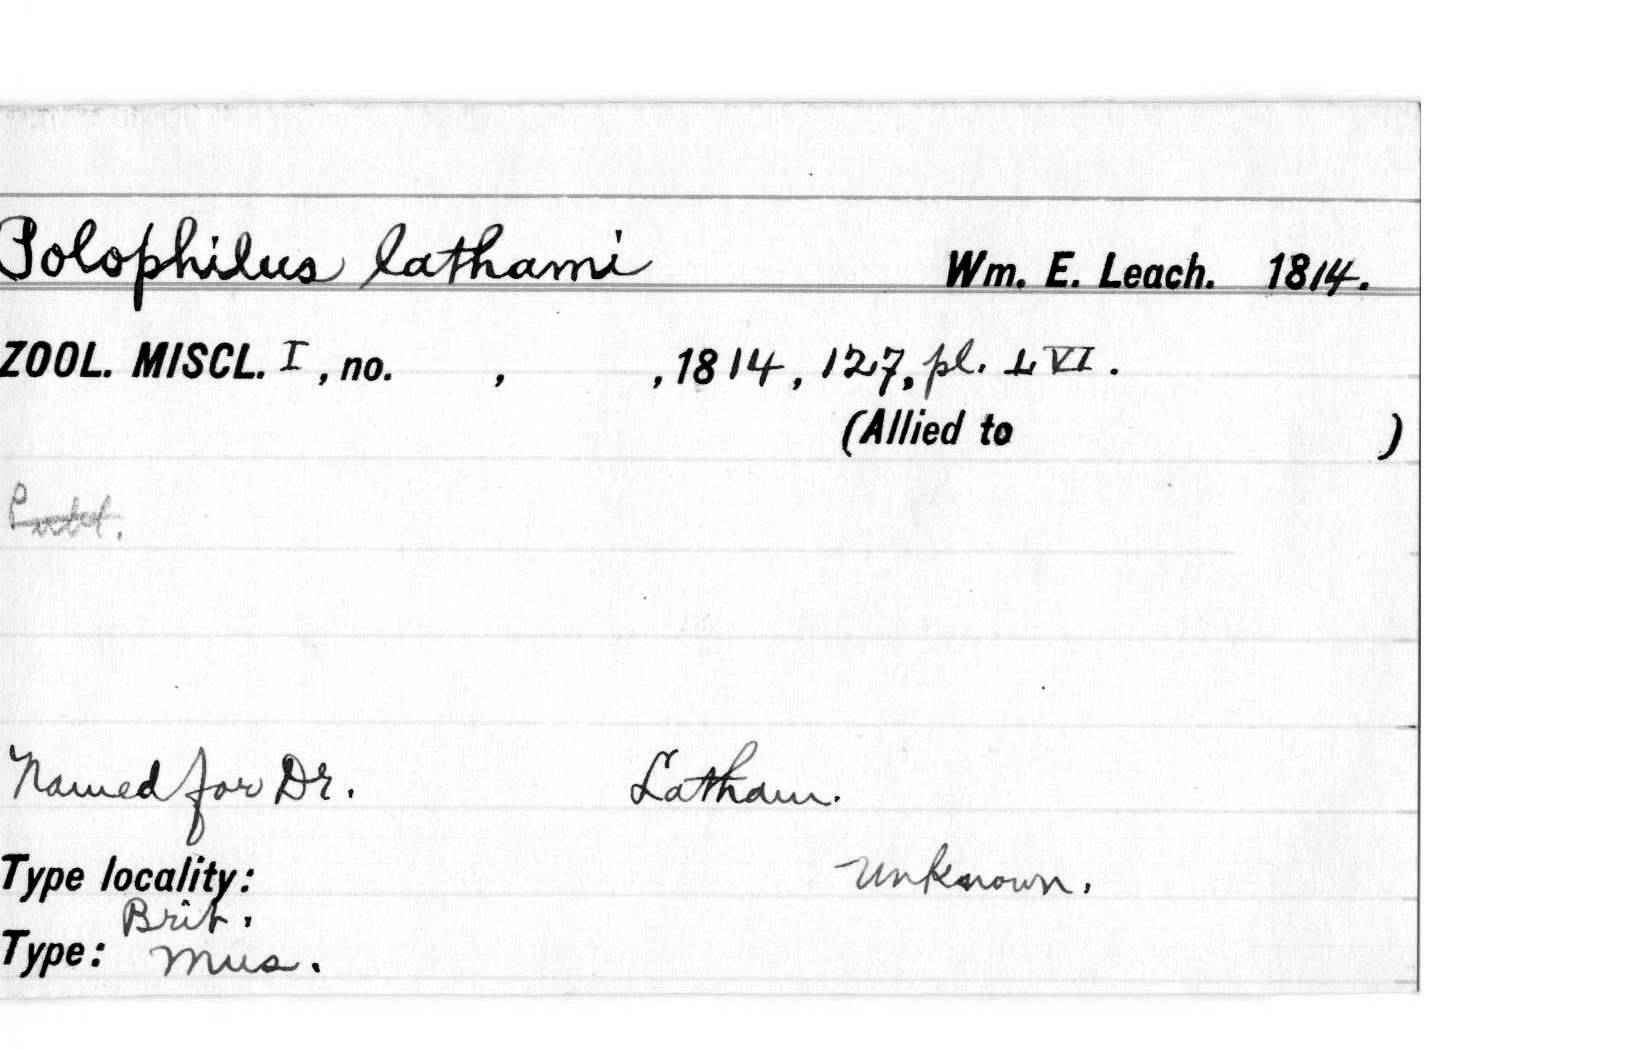 Polophilus lathami Wm. E. Leach. 1814.
ZOOL. MISCL. I, no. , , 1814, 127, pl. LVI.
(Allied to )
Named for Dr. Latham.
Type locality: Unknown.
Brit.
Type: Mus.